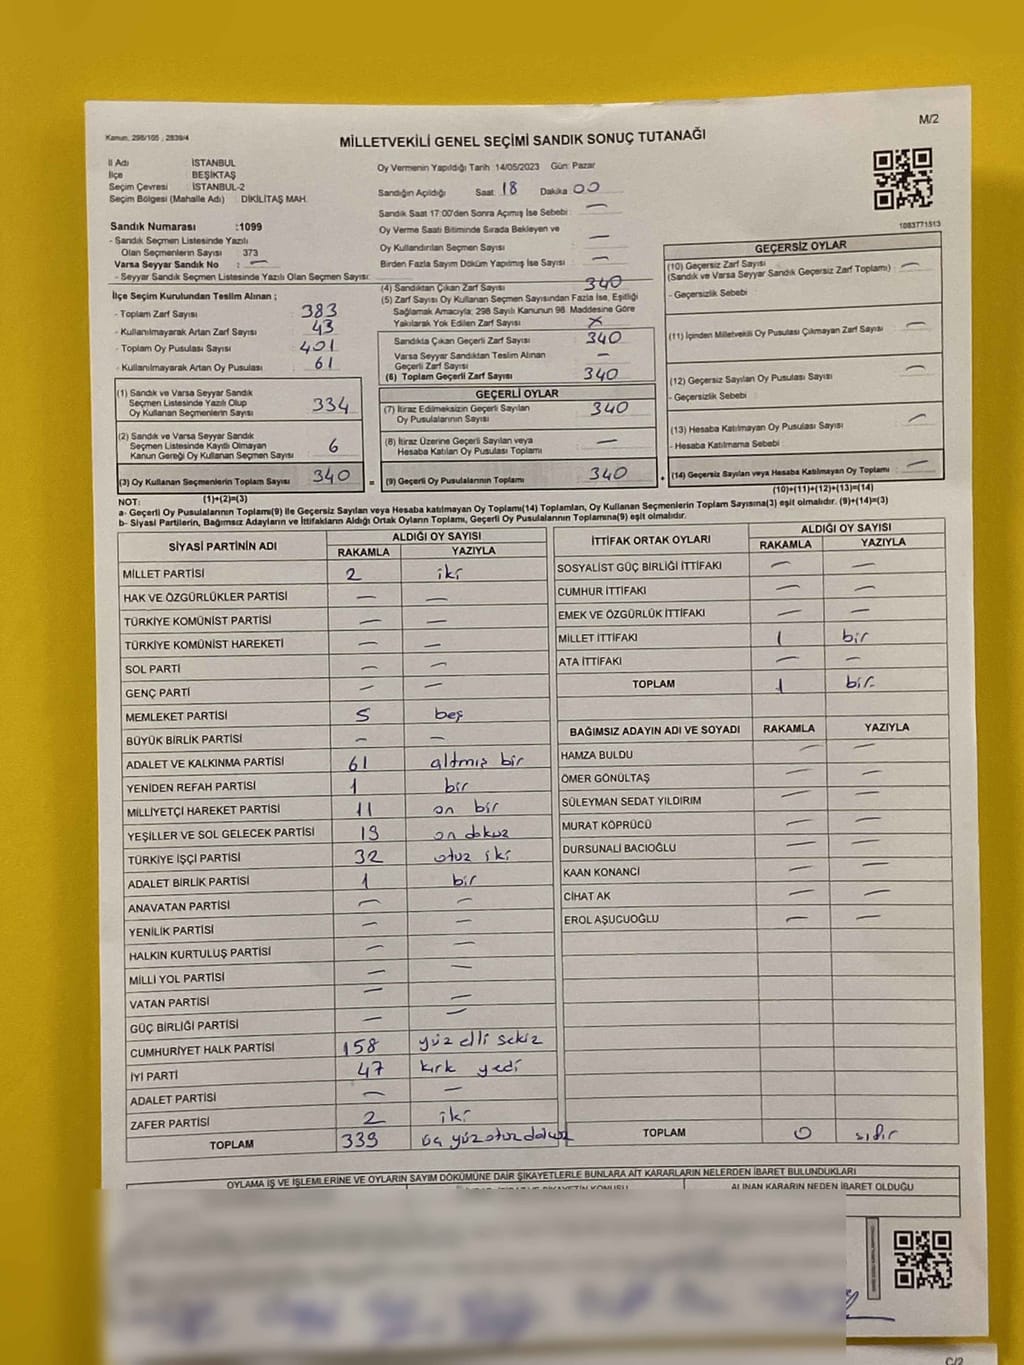 M/2
Kanun, 298/105 , 2839/4
MİLLETVEKİLİ GENEL SEÇİMİ SANDIK SONUÇ TUTANAĞI
İl Adı İSTANBUL
İlçe BEŞİKTAŞ
Seçim Çevresi İSTANBUL-2
Seçim Bölgesi (Mahalle Adı) DİKİLİTAŞ MAH.
Oy Vermenin Yapıldığı Tarih 14/05/2023 Gün: Pazar
Sandığın Açıldığı Saat 18 Dakika 00
Sandık Saat 17:00'den Sonra Açılmış İse Sebebi —
Oy Verme Saati Bitiminde Sırada Bekleyen ve
Oy Kullandırılan Seçmen Sayısı —
Birden Fazla Sayım Döküm Yapılmış İse Sayısı —
1083771513
Sandık Numarası :1099
- Sandık Seçmen Listesinde Yazılı
Olan Seçmenlerin Sayısı 373
Varsa Seyyar Sandık No : —
- Seyyar Sandık Seçmen Listesinde Yazılı Olan Seçmen Sayısı:
İlçe Seçim Kurulundan Teslim Alınan ;
- Toplam Zarf Sayısı 383
- Kullanılmayarak Artan Zarf Sayısı 43
- Toplam Oy Pusulası Sayısı 401
- Kullanılmayarak Artan Oy Pusulası 61
(1) Sandık ve Varsa Seyyar Sandık
Seçmen Listesinde Yazılı Olup
Oy Kullanan Seçmenlerin Sayısı 334
(2) Sandık ve Varsa Seyyar Sandık
Seçmen Listesinde Kayıtlı Olmayan
Kanun Gereği Oy Kullanan Seçmen Sayısı 6
(3) Oy Kullanan Seçmenlerin Toplam Sayısı 340
(4) Sandıktan Çıkan Zarf Sayısı 340
(5) Zarf Sayısı Oy Kullanan Seçmen Sayısından Fazla İse, Eşitliği
Sağlamak Amacıyla; 298 Sayılı Kanunun 98. Maddesine Göre
Yakılarak Yok Edilen Zarf Sayısı x
Sandıkta Çıkan Geçerli Zarf Sayısı 340
Varsa Seyyar Sandıktan Teslim Alınan
Geçerli Zarf Sayısı —
(6) Toplam Geçerli Zarf Sayısı 340
GEÇERLİ OYLAR
(7) İtiraz Edilmeksizin Geçerli Sayılan
Oy Pusulalarının Sayısı 340
(8) İtiraz Üzerine Geçerli Sayılan veya
Hesaba Katılan Oy Pusulası Toplamı —
= (9) Geçerli Oy Pusulalarının Toplamı 340
GEÇERSİZ OYLAR
(10) Geçersiz Zarf Sayısı —
(Sandık ve Varsa Seyyar Sandık Geçersiz Zarf Toplamı)
- Geçersizlik Sebebi
(11) İçinden Milletvekili Oy Pusulası Çıkmayan Zarf Sayısı —
(12) Geçersiz Sayılan Oy Pusulası Sayısı —
- Geçersizlik Sebebi
(13) Hesaba Katılmayan Oy Pusulası Sayısı —
- Hesaba Katılmama Sebebi
+ (14) Geçersiz Sayılan veya Hesaba Katılmayan Oy Toplamı —
NOT: (1)+(2)=(3) (10)+(11)+(12)+(13)=(14)
a- Geçerli Oy Pusulalarının Toplamı(9) ile Geçersiz Sayılan veya Hesaba katılmayan Oy Toplamı(14) Toplamları, Oy Kullanan Seçmenlerin Toplam Sayısına(3) eşit olmalıdır. (9)+(14)=(3)
b- Siyasi Partilerin, Bağımsız Adayların ve İttifakların Aldığı Ortak Oyların Toplamı, Geçerli Oy Pusulalarının Toplamına(9) eşit olmalıdır.
SİYASİ PARTİNİN ADI ALDIĞI OY SAYISI
RAKAMLA YAZIYLA
MİLLET PARTİSİ 2 iki
HAK VE ÖZGÜRLÜKLER PARTİSİ — —
TÜRKİYE KOMÜNİST PARTİSİ — —
TÜRKİYE KOMÜNİST HAREKETİ — —
SOL PARTİ — —
GENÇ PARTİ — —
MEMLEKET PARTİSİ 5 beş
BÜYÜK BİRLİK PARTİSİ — —
ADALET VE KALKINMA PARTİSİ 61 altmış bir
YENİDEN REFAH PARTİSİ 1 bir
MİLLİYETÇİ HAREKET PARTİSİ 11 on bir
YEŞİLLER VE SOL GELECEK PARTİSİ 19 on dokuz
TÜRKİYE İŞÇİ PARTİSİ 32 otuz iki
ADALET BİRLİK PARTİSİ 1 bir
ANAVATAN PARTİSİ — —
YENİLİK PARTİSİ — —
HALKIN KURTULUŞ PARTİSİ — —
MİLLİ YOL PARTİSİ — —
VATAN PARTİSİ — —
GÜÇ BİRLİĞİ PARTİSİ — —
CUMHURİYET HALK PARTİSİ 158 yüz elli sekiz
İYİ PARTİ 47 kırk yedi
ADALET PARTİSİ — —
ZAFER PARTİSİ 2 iki
TOPLAM 339 üç yüz otuz dokuz
İTTİFAK ORTAK OYLARI ALDIĞI OY SAYISI
RAKAMLA YAZIYLA
SOSYALİST GÜÇ BİRLİĞİ İTTİFAKI — —
CUMHUR İTTİFAKI — —
EMEK VE ÖZGÜRLÜK İTTİFAKI — —
MİLLET İTTİFAKI 1 bir
ATA İTTİFAKI — —
TOPLAM 1 bir
BAĞIMSIZ ADAYIN ADI VE SOYADI RAKAMLA YAZIYLA
HAMZA BULDU — —
ÖMER GÖNÜLTAŞ — —
SÜLEYMAN SEDAT YILDIRIM — —
MURAT KÖPRÜCÜ — —
DURSUNALİ BACIOĞLU — —
KAAN KONANCİ — —
CİHAT AK — —
EROL AŞUCUOĞLU — —
TOPLAM 0 sıfır
OYLAMA İŞ VE İŞLEMLERİNE VE OYLARIN SAYIM DÖKÜMÜNE DAİR ŞİKAYETLERLE BUNLARA AİT KARARLARIN NELERDEN İBARET BULUNDUKLARI
ALINAN KARARIN NEDEN İBARET OLDUĞU
C/2